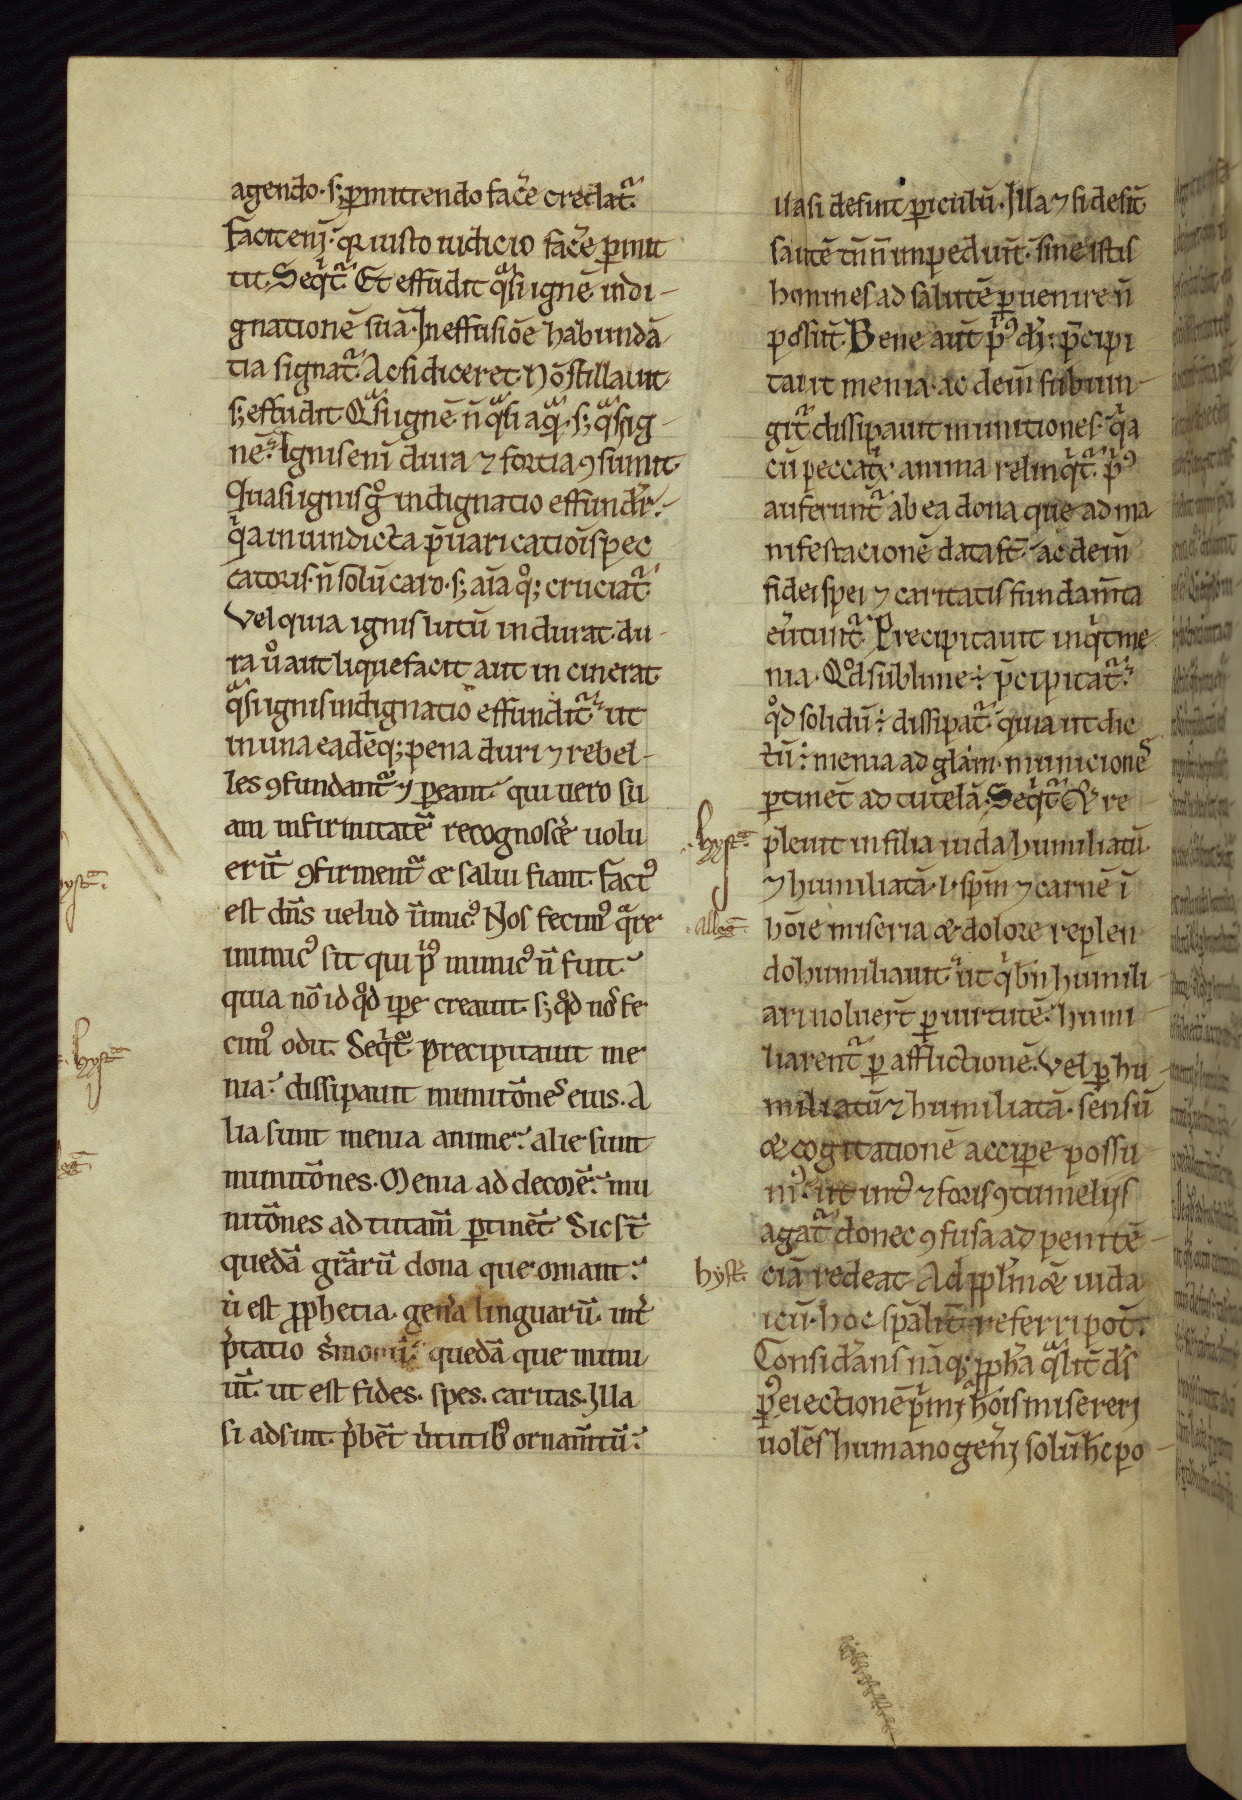 agendo· sꝫ ꝑmittendo fac̉e credat᷑.
Facit enī· qͥ iusto iudicio fac̉e ꝑmit
tit. Seqͥt᷑. Et effudit qͣsi ignē indi-
gnationē suā. In effusiōe habundā
tia signat᷑. Ac si diceret. Nō stillauit
sꝫ effudit. Qͣsi ignē n̄ qͣsi aqͣ. sꝫ qͣsi ig-
nē. Ignis eni dura ⁊ fortia ꝯsumit.
Quasi ignis gͦ indignatio effundit᷑.
qͥa in uindicta p̄uaricatiōis pec
catoris. n̄ solū caro. sꝫ aīa qͦꝫ cruciat᷑.
Vel quia ignis lutū indurat. du-
ra ůo aut liquefacit aut incinerat
qͣsi ignis indignatio effundit᷑. ut
in una eadēqꝫ pena duri ⁊ rebel-
les ꝯfundant᷑ ⁊ ꝑeant. qui uero su
am infirmitatē recognosc̉e uolu
erīt ꝯfirment᷑ & salui fiant. Factꝰ
est dn̄s uelud inimicꝰ. Nos fecimꝰ qͣre
inimicꝰ sit qui pͥꝰ inimicꝰ n̄ fuit.
quia nō id qͦd ip̄e creauit. sꝫ qͦd nos fe
cimꝰ odit. Seqͥt᷑. precipitauit me
nia. dissipauit munitōnes eius. A
lia sunt menia anime. alie sunt
munitōnes. Menia ad decorē. mu
nitōnes ad tutam̄ ꝑtinēt. Sic st̄
quedā gr̄arū dona que ornant.
ůt est ꝓphetia. gen̉a linguarū. int̉
p̉tatio s̉monū. quedā que muni
ūt. ut est fides. spes. caritas. Illa
si adsint. p̉bēt ůtutibꝰ ornam̄tū.
hyst᷑.
alleg᷑.
ista si desint ꝑiculū. Illa ⁊ si desīt
salutē tn̄ n̄ impediūt. sine istis
homines ad salutē ꝑuenire n̄
possūt. Bene aūt pͥꝰ dr̄. p̄cipi
tauit menia. ac dein subiun-
git᷑ dissipauit munitiones. qͥa
cū peccat᷑ix anima relinqͥt᷑. pͥꝰ
auferunt᷑ ab ea dona que ad ma
nifestacionē data st̄. ac dein
fidei spei ⁊ caritatis fundam̄ta
eůtunt᷑. Precipitauit inqͥt me
nia. Qd̊ sublime ÷ p̄cipitat᷑.
qͦd solidū ÷ dissipat᷑. quia ut dic
tū ÷ menia ad gl̄am. municiones
ꝑtinēt ad tutelā. Seqͥt᷑. Et re
pleuit in filia iuda humiliatū.
⁊ humiliatā. ł. sp̄m ⁊ carnē ī
hōie miseria & dolore replen
do humiliauit. ut qͥ bn̄ humili
ari noluer̄t ꝑ uirtutē. humi
liarent᷑ ꝑ afflictionē. Vel ꝑ hu-
miliatū ⁊ humiliatā. sensū
& cogitationē accipe possu
mꝰ. ut intꝰ ⁊ foris ꝯtumeliis
agat᷑ donec ꝯfusa ad penitē-
ciā redeat. Ad ppl̄m & iuda
icū. hoc sp̄alit᷑ referri pot̄.
Considerans nāqꝫ ꝓph̄a qͣlit̄ d̄s
pͥꝰ eiectionē pͥmi hōis misereri
uolēs humano gen̉i solū h̄c po-